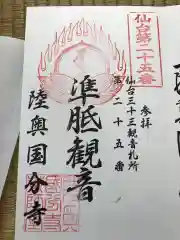 仙台第二十五番
参拝
仙台三十三観音札所
第二十五番
準胝観音
陸奥国分寺